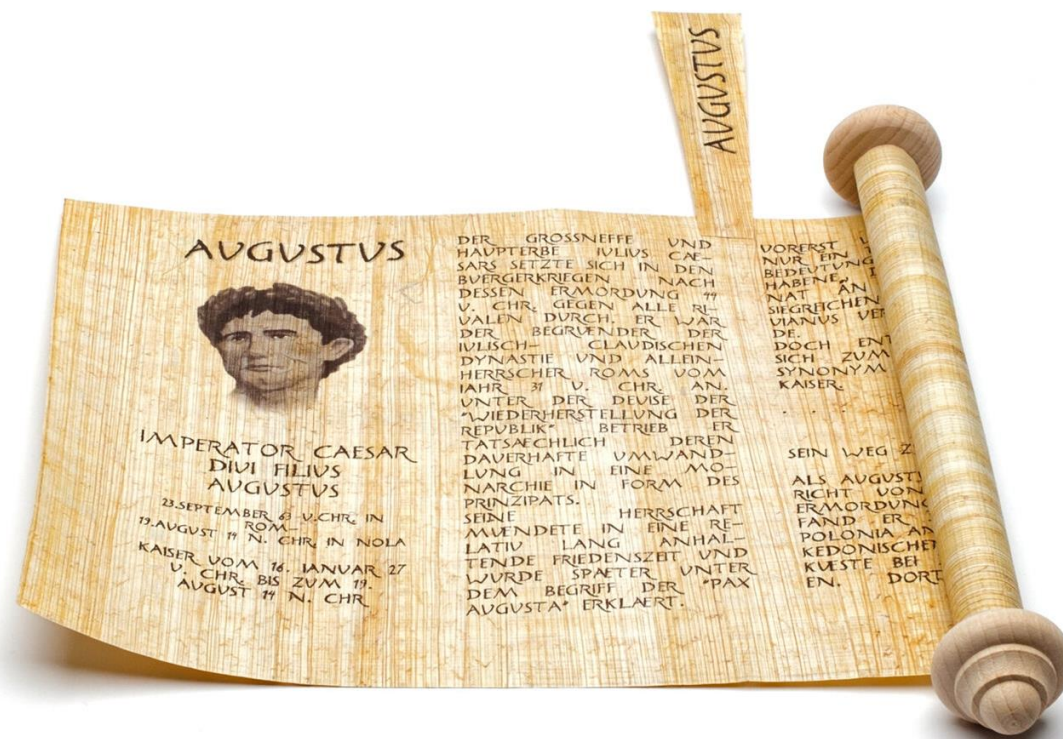 AUGUSTUS
AUGUSTUS
IMPERATOR CAESAR
DIVI FILIUS
AUGUSTUS
23.SEPTEMBER 63 V.CHR. IN
ROM-
19.AUGUST 14 N. CHR. IN NOLA
KAISER VOM 16. IANUAR 27
V. CHR. BIS ZUM 19.
AUGUST 14 N. CHR
DER GROSSNEFFE UND
HAUPTERBE IULIUS CAE-
SARS SETZTE SICH IN DEN
BUERGERKRIEGEN NACH
DESSEN ERMORDUNG 44
V. CHR. GEGEN ALLE RI-
VALEN DURCH. ER WAR
DER BEGRUENDER DER
IULISCH- CLAUDISCHEN
DYNASTIE UND ALLEIN-
HERRSCHER ROMS VOM
IAHR 31 V. CHR. AN.
UNTER DER DEVISE DER
"WIEDERHERSTELLUNG DER
REPUBLIK" BETRIEB ER
TATSAECHLICH DEREN
DAUERHAFTE UMWAND-
LUNG IN EINE MO-
NARCHIE IN FORM DES
PRINZIPATS.
SEINE HERRSCHAFT
MUENDETE IN EINE RE-
LATIV LANG ANHAL-
TENDE FRIEDENSZEIT UND
WURDE SPAETER UNTER
DEM BEGRIFF DER "PAX
AUGUSTA" ERKLAERT.
VORERST
NUR EIN
BEDEUTUNG
HABENE,
NAT AN
SIEGREICHEN
VIANUS VER
DE.
DOCH ENT
SICH ZUM
SYNONYM
KAISER.
SEIN WEG Z
ALS AUGUSTUS
RICHT VON
ERMORDUNG
FAND ER
POLONIA AN
KEDONISCHEN
KUESTE BEF
EN. DORT